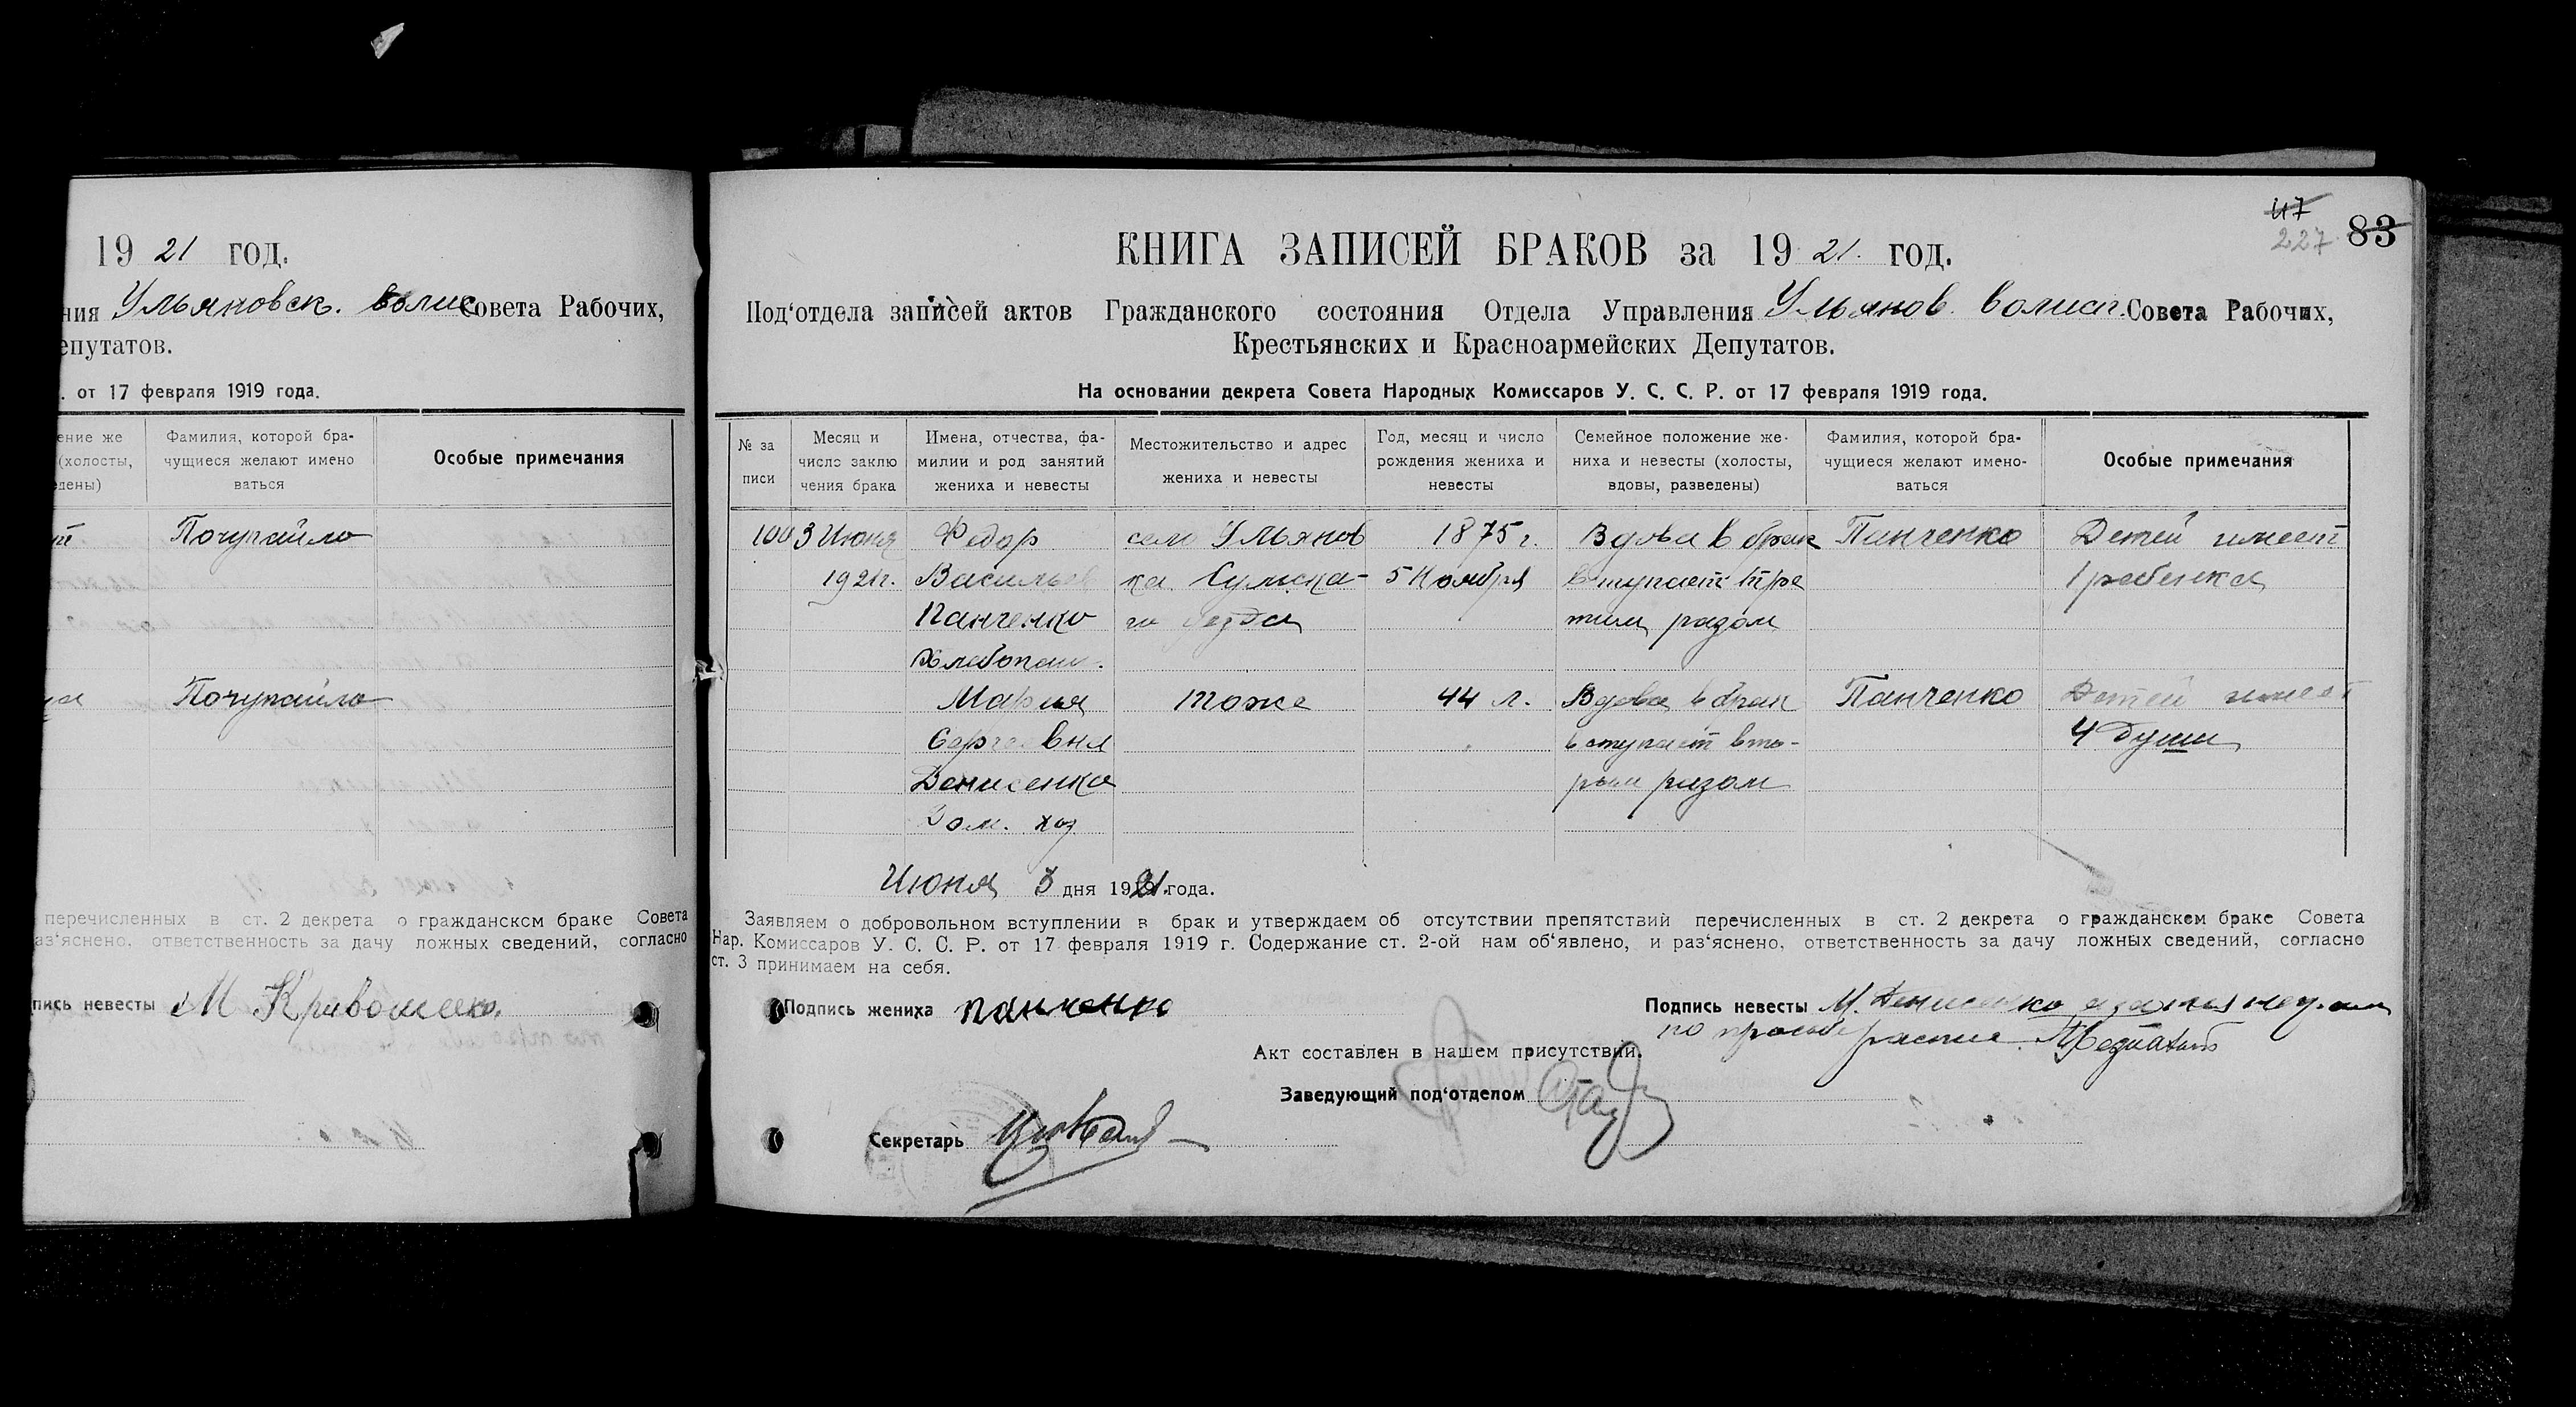 19 21 год.
ния Ульяновск. волис Совета Рабочих,
епутатов.
. от 17 февраля 1919 года.
ение же
(холосты,
дены)
Фамилия, которой бра-
чущиеся желают имено
ваться
Особые примечания
Почупайло
Почупайло
перечисленных в ст. 2 декрета о гражданском браке Совета
аз'яснено, ответственность за дачу ложных сведений, согласно
пись невесты М Кривошеею.
47
227 83
КНИГА ЗАПИСЕЙ БРАКОВ за 19 21. год.
Под'отдела записей актов Гражданского состояния Отдела Управления Ульянов. волисп. Совета Рабочих,
Крестьянских и Красноармейских Депутатов.
На основании декрета Совета Народных Комиссаров У. С. С. Р. от 17 февраля 1919 года.
№ за
писи
Месяц и
число заклю
чения брака
Имена, отчества, фа-
милии и род занятий
жениха и невесты
Местожительство и адрес
жениха и невесты
Год, месяц и число
рождения жениха и
невесты
Семейное положение же-
ниха и невесты (холосты,
вдовы, разведены)
Фамилия, которой бра-
чущиеся желают имено-
ваться
Особые примечания
100 3 Июня Федор село Ульянов 1875 г. Вдова в брак Панченко Детей имеет
1921г. Васильев ка Сумска- 5 Ноября вступает тре 1 ребенка
Панченко го уезда тим разом
Хлебопаш.
Мария тоже 44 л. Вдова в брак Панченко Детей имеет
Сергеевна вступает вто- 4 души
Денисенко рым разом
Дом. хоз
Июня 3 дня 1921. года.
Заявляем о добровольном вступлении в брак и утверждаем об отсутствии препятствий перечисленных в ст. 2 декрета о гражданском браке Совета
Нар. Комиссаров У. С. С. Р. от 17 февраля 1919 г. Содержание ст. 2-ой нам об'явлено, и раз'яснено, ответственность за дачу ложных сведений, согласно
ст. 3 принимаем на себя.
Подпись жениха панченко
Подпись невесты М. Денисенко а за нея неграм
по просьбе распис.
Акт составлен в нашем присутствии.
Заведующий под'отделом
Секретарь